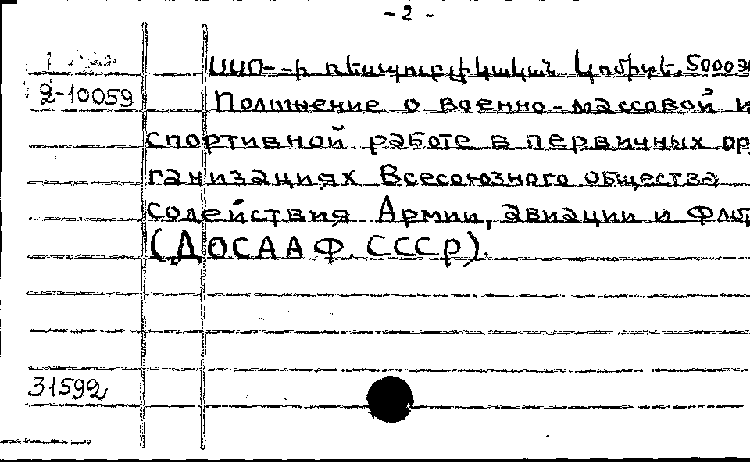 - 2 -
ՍՍՌ-ի ռեսպուբլիկական կոմիտե. 5000
2-10059 Положение о военно-массовой и
спортивной работе в первичных ор
ганизациях Всесоюзного общества
содействия Армии, авиации и Фло
(ДОСААФ СССР).
31592